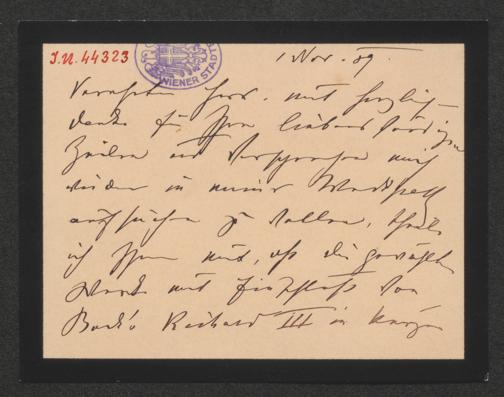 I.N. 44323
WIENER STADT
1 Nov. 89.
Verehrter Herr. mit herzlich-
Danke für Ihre lieben
Zeilen und Versprechen mich
wieder in meiner Werkstatt
aufsuchen zu wollen, theile
ich Ihnen mit, daß die gewählten
Werke mit Einschluß von
Richard III in